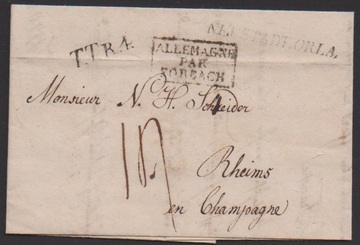 NEUSTADT.ORLA.
T.T.R.4.
ALLEMAGNE
PAR
FORBACH
Monsieur N. H. Schneider
4
Rheims
en Champagne